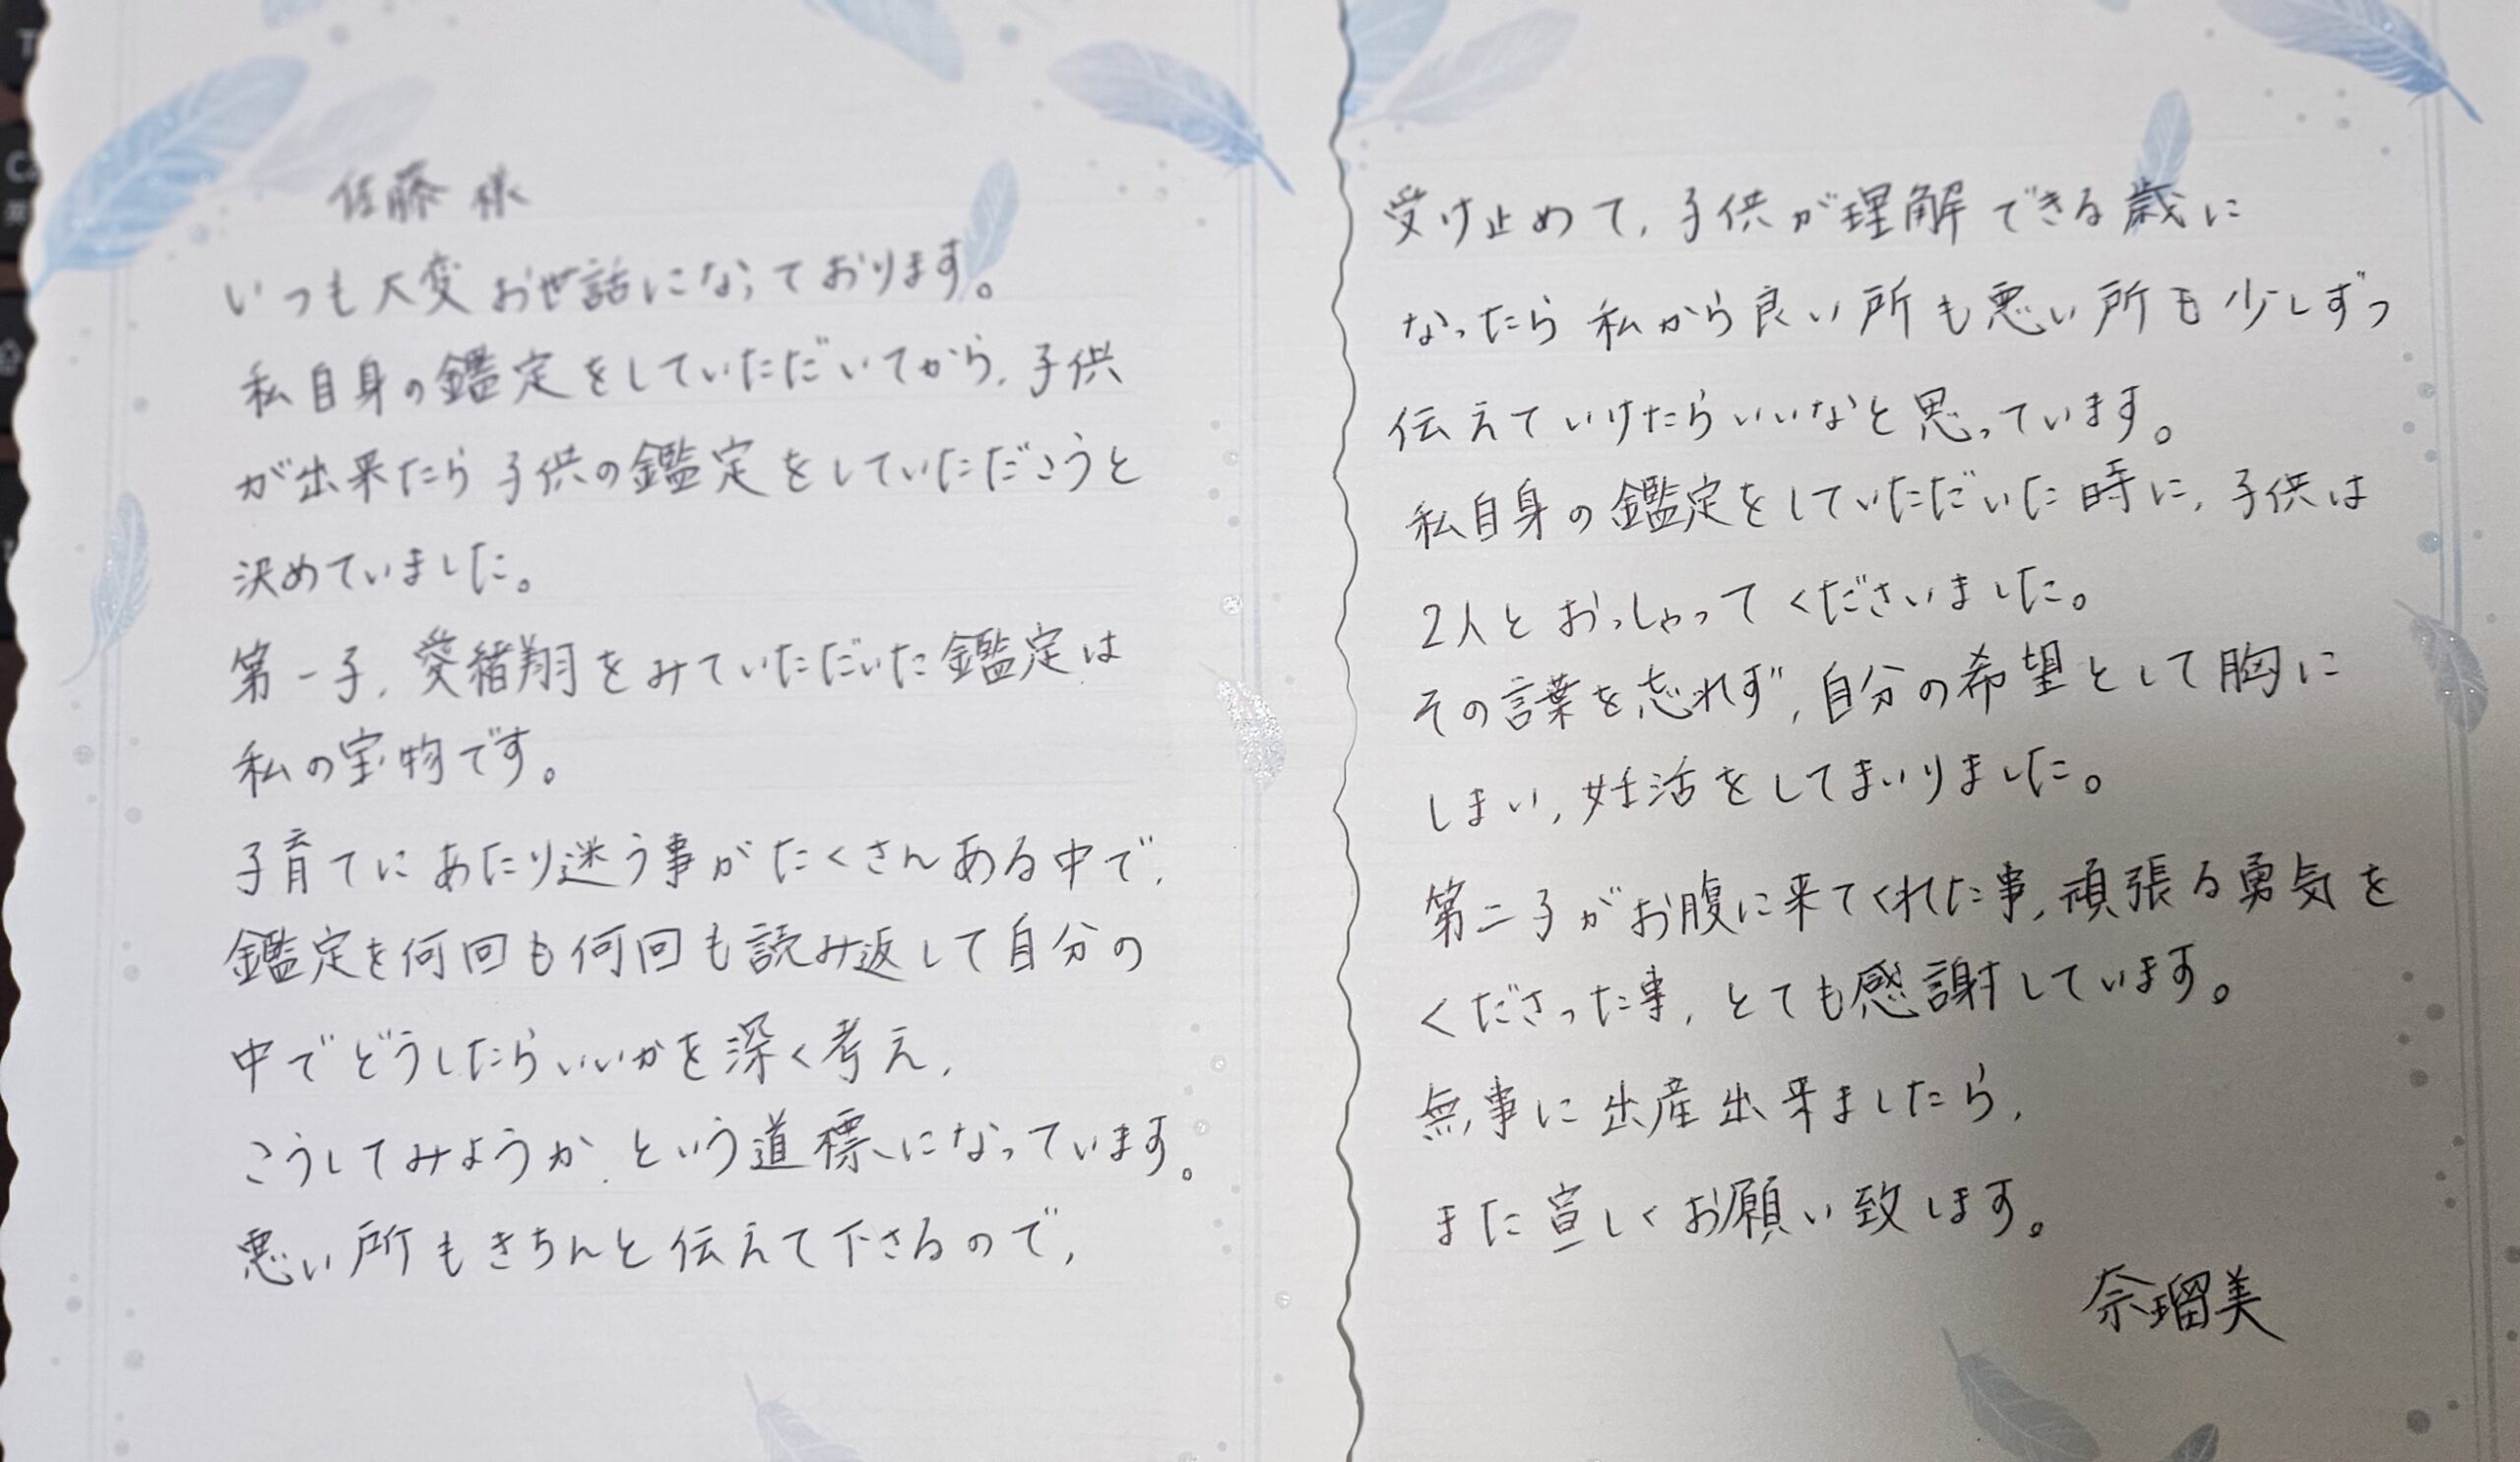 佐藤 様
いつも大変お世話になっております。
私自身の鑑定をしていただいてから、子供
が出来たら子供の鑑定をしていただこうと
決めていました。
第一子、愛緒翔をみていただいた鑑定は
私の宝物です。
子育てにあたり迷う事がたくさんある中で、
鑑定を何回も何回も読み返して自分の
中でどうしたらいいかを深く考え、
こうしてみようか、という道標になっています。
悪い所もきちんと伝えて下さるので、
受け止めて、子供が理解できる歳に
なったら私から良い所も悪い所も少しずつ
伝えていけたらいいなと思っています。
私自身の鑑定をしていただいた時に、子供は
2人とおっしゃってくださいました。
その言葉を忘れず、自分の希望として胸に
しまい、妊活をしてまいりました。
第二子がお腹に来てくれた事、頑張る勇気を
くださった事、とても感謝しています。
無事に出産出来ましたら、
また宜しくお願い致します。
奈瑠美